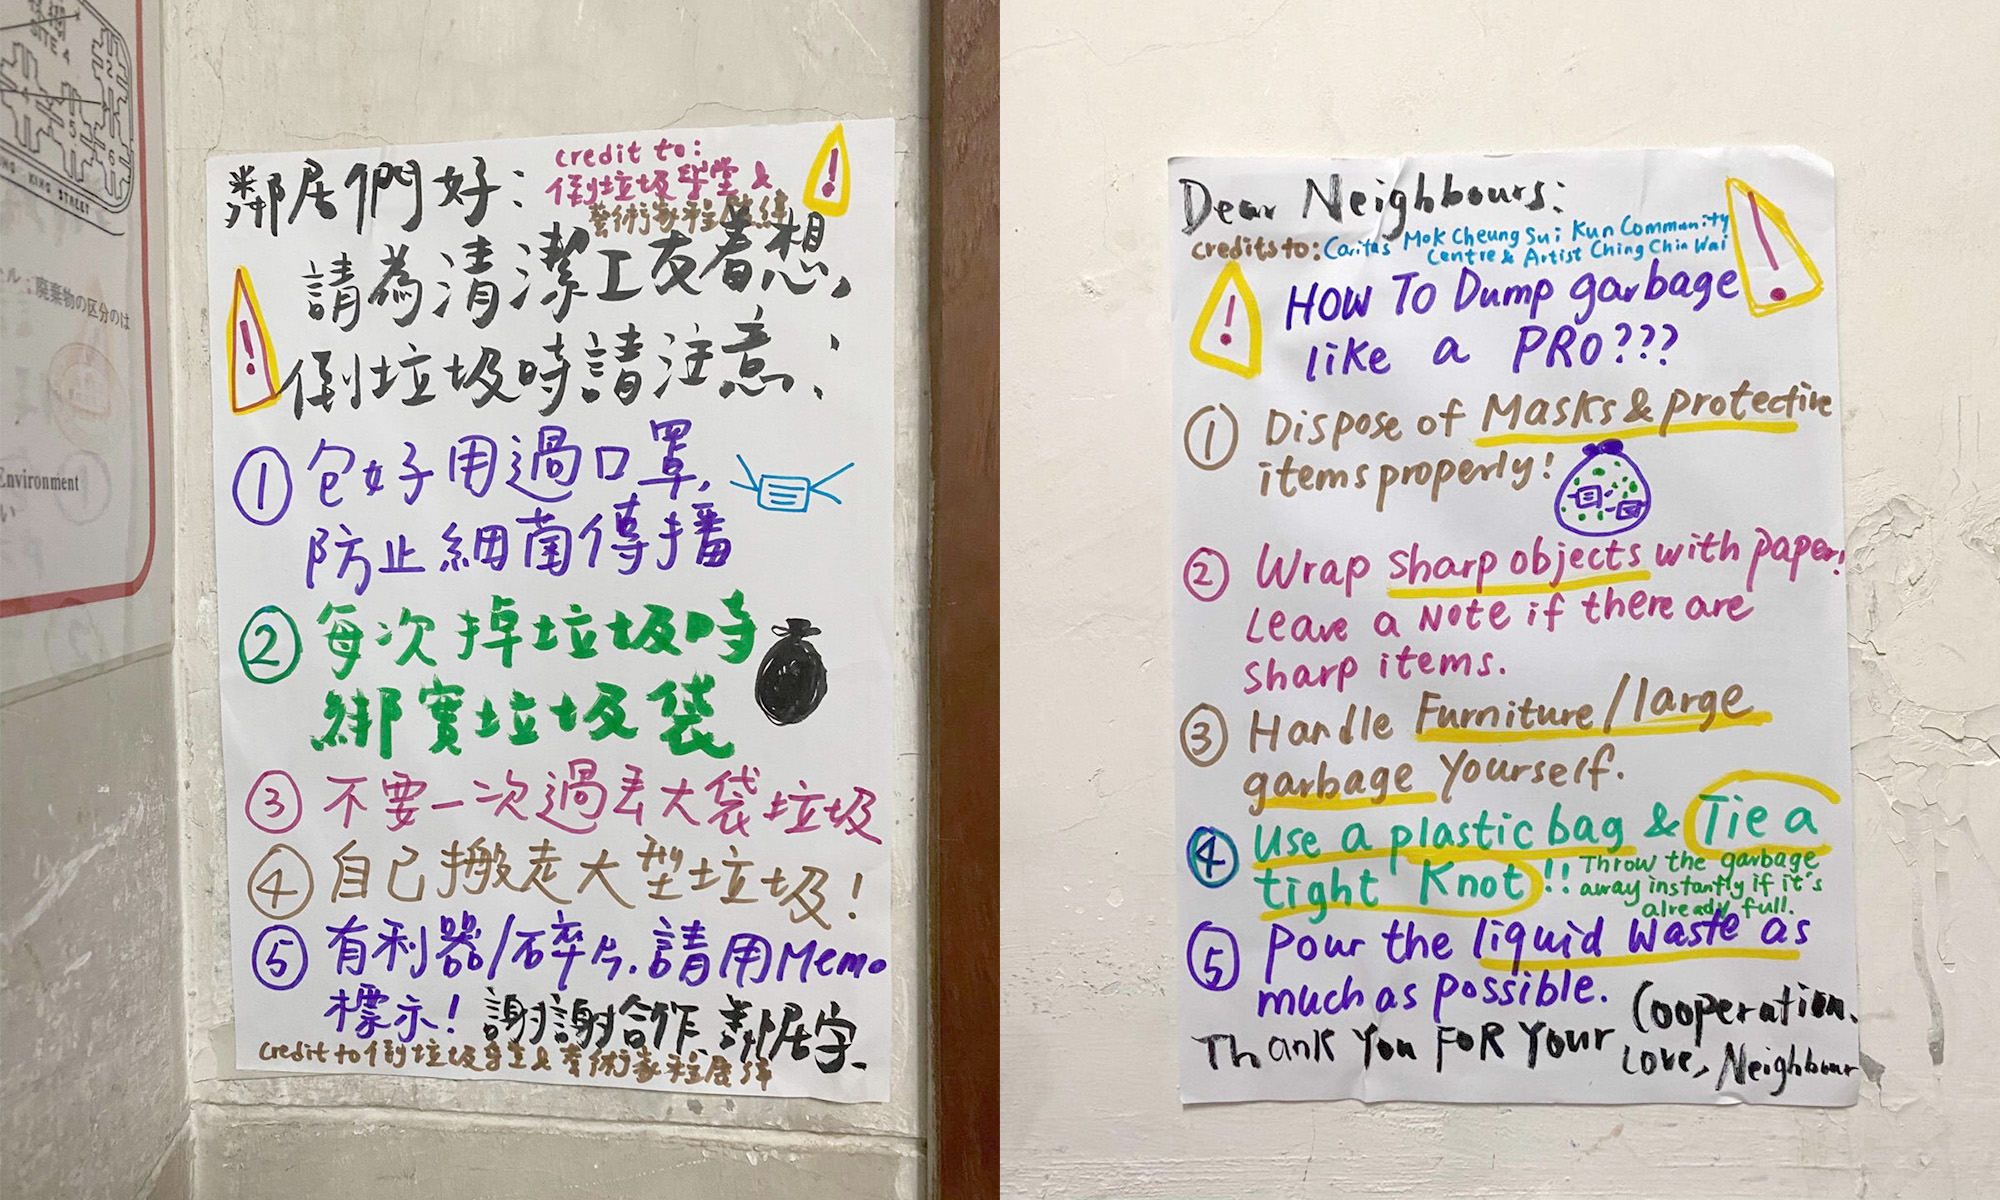 SITE 4
2
5
6
KING STREET
廃棄物の区分のは
Environment
い
鄰居們好：
credit to:
倒垃圾學堂 &
請為清潔工友着想,
倒垃圾時請注意：
① 包好用過口罩,
防止細菌傳播
② 每次掉垃圾時
綁實垃圾袋
③ 不要一次過丟大袋垃圾
④ 自己搬走大型垃圾！
⑤ 有利器/碎片, 請用Memo
標示！ 謝謝合作、鄰居字
credit to 倒垃圾學堂 & 藝術家程展緯
Dear Neighbours:
credits to: Caritas Mok Cheung Sui Kun Community
Centre & Artist Ching Chin Wai
! HOW TO Dump garbage !
like a PRO???
① Dispose of Masks & protective
items properly!
② Wrap sharp objects with paper!
Leave a Note if there are
sharp items.
③ Handle Furniture/large
garbage yourself.
④ Use a plastic bag & Tie a
tight Knot!!
Throw the garbage
away instantly if it's
already full.
⑤ Pour the liquid waste as
much as possible.
Thank You FoR Your Cooperation.
Love, Neighbour